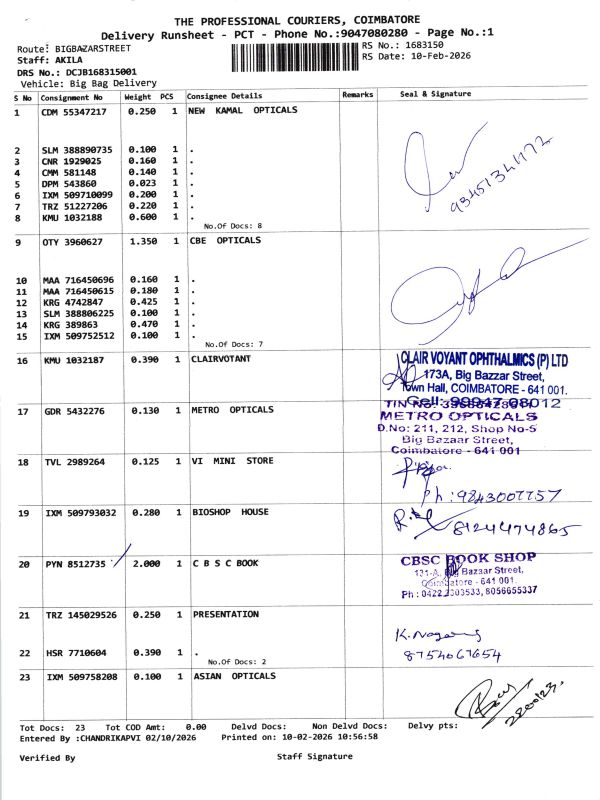 THE PROFESSIONAL COURIERS, COIMBATORE
Delivery Runsheet - PCT - Phone No.:9047080280 - Page No.:1
Route: BIGBAZARSTREET RS No.: 1683150
Staff: AKILA RS Date: 10-Feb-2026
DRS No.: DCJB168315001
Vehicle: Big Bag Delivery
S No Consignment No Weight PCS Consignee Details Remarks Seal & Signature
1 CDM 55347217 0.250 1 NEW KAMAL OPTICALS
2 SLM 388890735 0.100 1 .
3 CNR 1929025 0.160 1 .
4 CMM 581148 0.140 1 .
5 DPM 543860 0.023 1 .
6 IXM 509710099 0.200 1 .
7 TRZ 51227206 0.220 1 .
8 KMU 1032188 0.600 1 .
No.Of Docs: 8
9 OTY 3960627 1.350 1 CBE OPTICALS
10 MAA 716450696 0.160 1 .
11 MAA 716450615 0.180 1 .
12 KRG 4742847 0.425 1 .
13 SLM 388806225 0.100 1 .
14 KRG 389863 0.470 1 .
15 IXM 509752512 0.100 1 .
No.Of Docs: 7
16 KMU 1032187 0.390 1 CLAIRVOTANT
CLAIR VOYANT OPHTHALMICS (P) LTD
173A, Big Bazzar Street,
Town Hall, COIMBATORE - 641 001.
Cell: 99947 08012
17 GDR 5432276 0.130 1 METRO OPTICALS
METRO OPTICALS
D.No: 211, 212, Shop No-5
Big Bazaar Street,
Coimbatore - 641 001
18 TVL 2989264 0.125 1 VI MINI STORE
Ph: 9843007757
19 IXM 509793032 0.280 1 BIOSHOP HOUSE
8124474865
20 PYN 8512735 2.000 1 C B S C BOOK
CBSC BOOK SHOP
Bazaar Street,
Coimbatore - 641 001.
Ph : 0422 2303533, 8056655337
21 TRZ 145029526 0.250 1 PRESENTATION
22 HSR 7710604 0.390 1 .
8754067654
No.Of Docs: 2
23 IXM 509758208 0.100 1 ASIAN OPTICALS
Tot Docs: 23 Tot COD Amt: 0.00 Delvd Docs: Non Delvd Docs: Delvy pts:
Entered By :CHANDRIKAPVI 02/10/2026 Printed on: 10-02-2026 10:56:58
Verified By Staff Signature